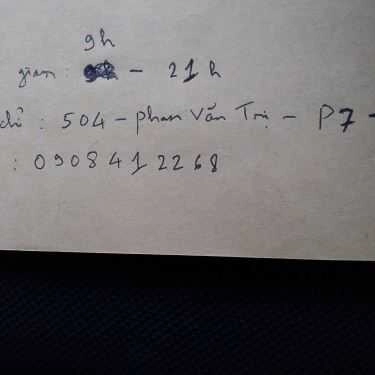 9h
gian : - 21h
chỉ : 504 - Phan Văn Trị - P7 -
: 0908412268